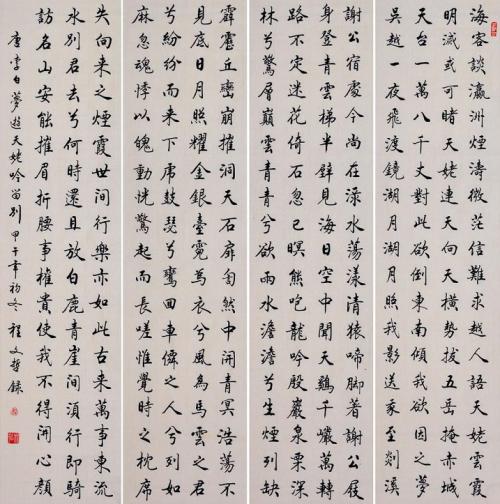 海客談瀛洲煙濤微茫信難求越人語天姥雲霞
明滅或可睹天姥連天向天橫勢拔五岳掩赤城
天台一萬八千丈對此欲倒東南傾我欲因之夢
吳越一夜飛渡鏡湖月湖月照我影送我至剡溪
謝公宿處今尚在淥水蕩漾清猿啼脚著謝公屐
身登青雲梯半壁見海日空中聞天鷄千巖萬轉
路不定迷花倚石忽已暝熊咆龍吟殷巖泉栗深
林兮驚層巔雲青青兮欲雨水澹澹兮生煙列缺
霹靂丘巒崩摧洞天石扉訇然中開青冥浩蕩不
見底日月照耀金銀臺霓爲衣兮風爲馬雲之君
兮紛紛而來下虎鼓瑟兮鸞回車僊之人兮列如
麻忽魂悸以魄動恍驚起而長嗟惟覺時之枕席
失向來之煙霞世間行樂亦如此古來萬事東流
水別君去兮何時還且放白鹿青崖間須行即騎
訪名山安能摧眉折腰事權貴使我不得開心顏
唐李白夢遊天姥吟留別 甲午年初冬 程文哲錄